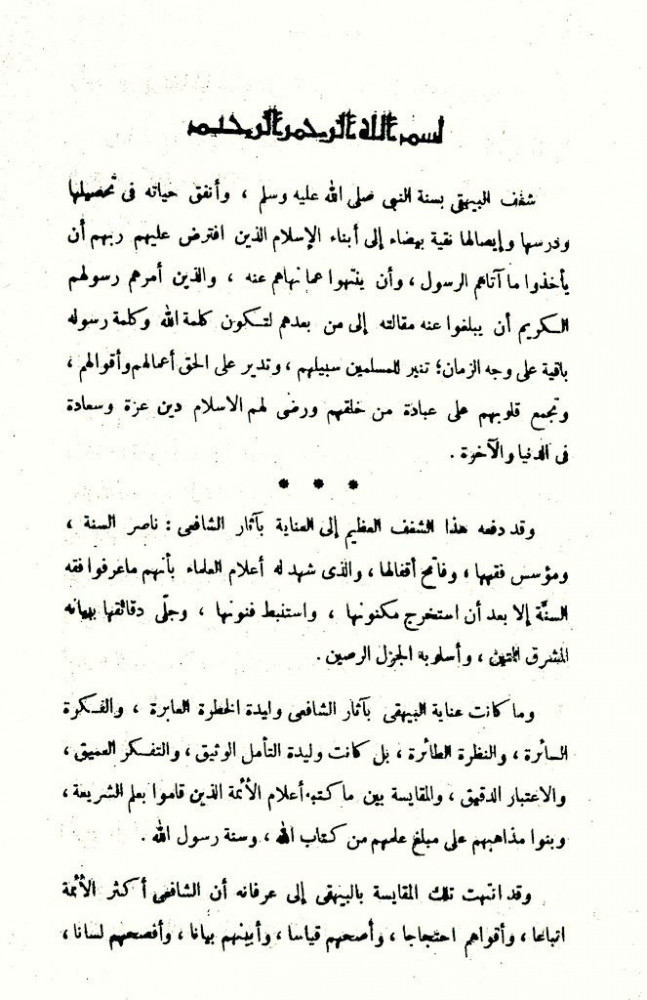 بسم الله الرحمن الرحيم
شغف البيهقى بسنة النبى صلى الله عليه وسلم ، وأنفق حياته فى تحصيلها
ودرسها وإيصالها نقية بيضاء إلى أبناء الإسلام الذين افترض عليهم ربهم أن
يأخذوا ما آتاهم الرسول ، وأن ينتهوا عما نهاهم عنه ، والذين أمرهم رسولهم
الكريم أن يبلغوا عنه مقالته إلى من بعدهم لتكون كلمة الله وكلمة رسوله
باقية على وجه الزمان؛ تنير للمسلمين سبيلهم ، وتدير على الحق أعمالهم وأقوالهم ،
وتجمع قلوبهم على عبادة من خلقهم ورضى لهم الاسلام دين عزة وسعادة
فى الدنيا والآخرة .
* * *
وقد دفعه هذا الشغف العظيم إلى العناية بآثار الشافعى : ناصر السنة ،
ومؤسس فقهها ، وفاتح أقفالها ، والذى شهد له أعلام العلماء بأنهم ماعرفوا فقه
السنّة إلا بعد أن استخرج مكنونها ، واستنبط فنونها ، وجلّى دقائقها ببيانه
المشرق المتين ، وأسلوبه الجزل الرصين .
وما كانت عناية البيهقى بآثار الشافعى وليدة الخطرة العابرة ، والفكرة
السائرة ، والنظرة الطائرة ، بل كانت وليدة التأمل الوثيق ، والتفكر العميق ،
والاعتبار الدقيق ، والمقايسة بين ما كتبه أعلام الأئمة الذين قاموا بعلم الشريعة ،
وبنوا مذاهبهم على مبلغ علمهم من كتاب الله ، وسنة رسول الله .
وقد انتهت تلك المقايسة بالبيهقى إلى عرفانه أن الشافعى أكثر الأئمة
اتباعا ، وأقواهم احتجاجا ، وأصحهم قياسا ، وأبينهم بيانا ، وأفصحهم لسانا ،